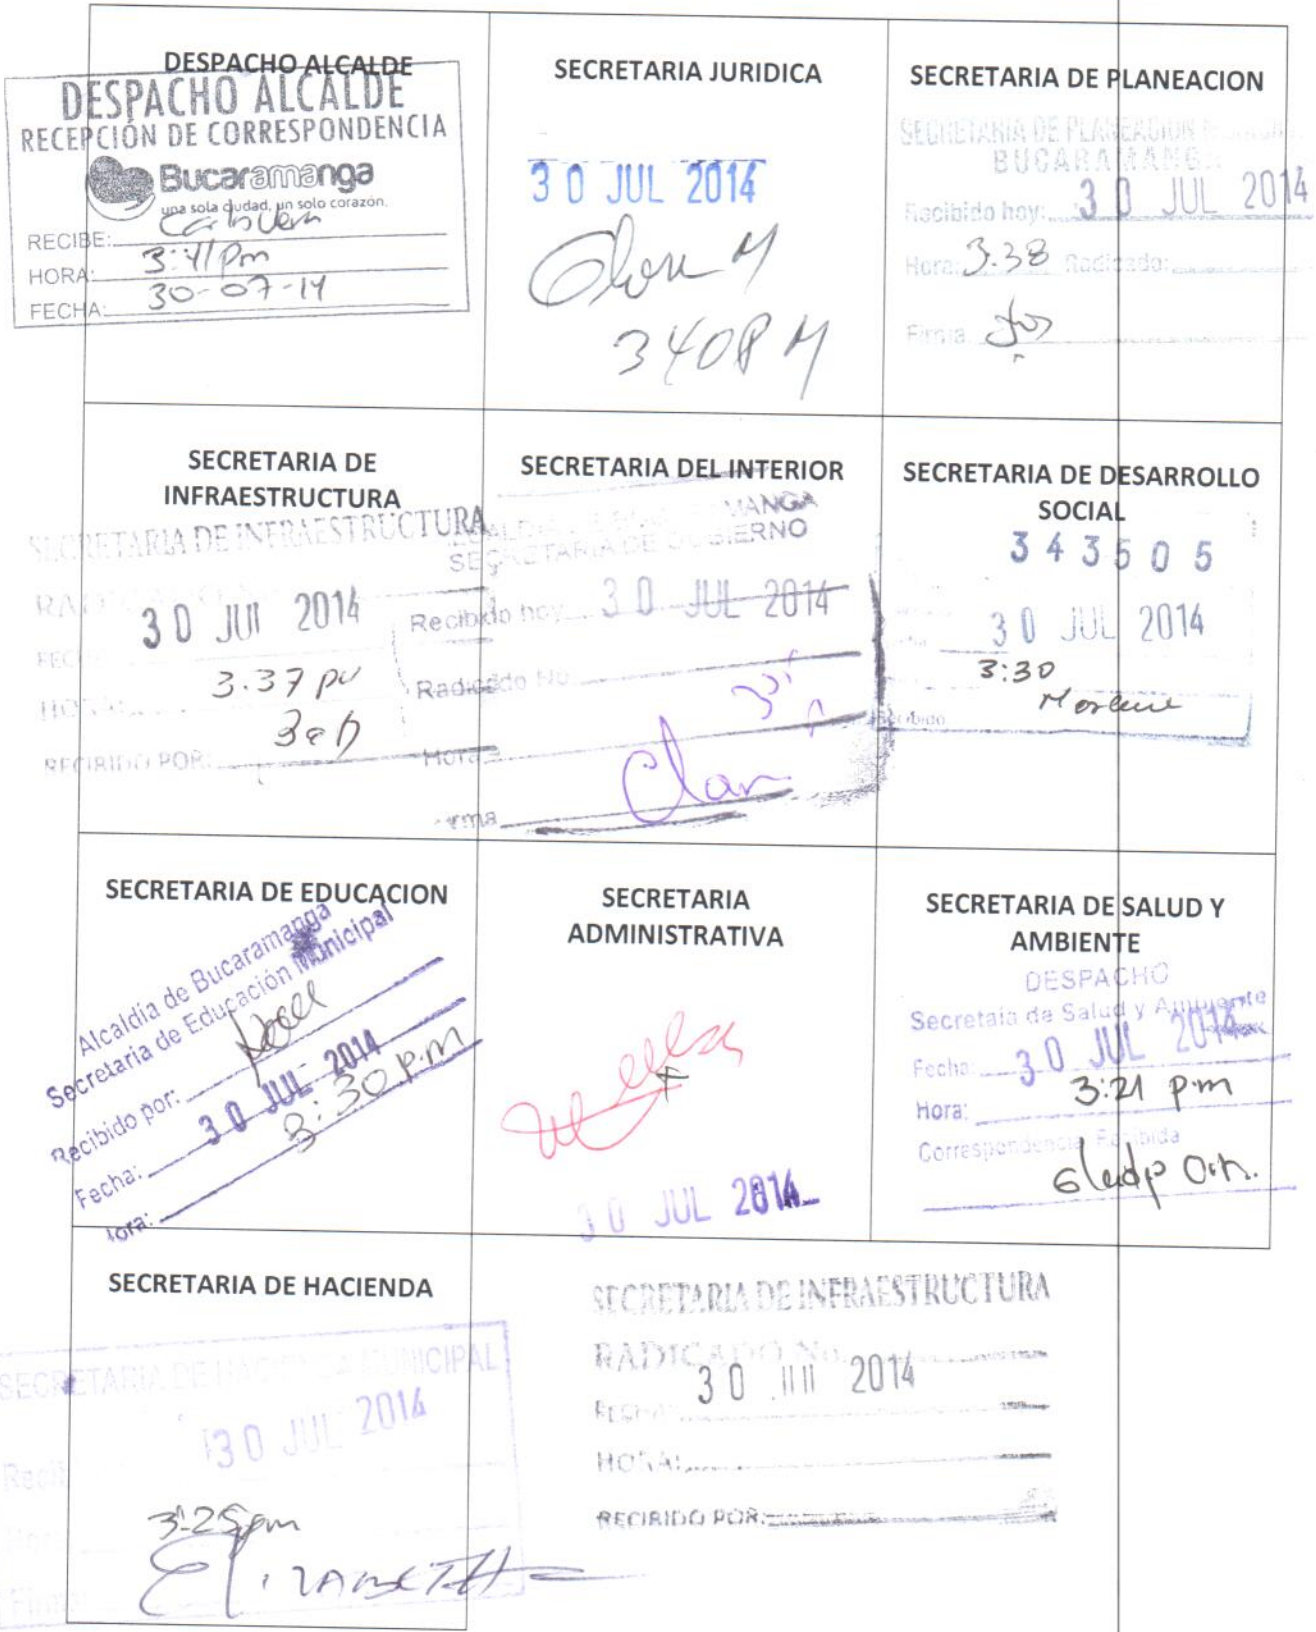 DESPACHO ALCALDE
DESPACHO ALCALDE
RECEPCIÓN DE CORRESPONDENCIA
Bucaramanga
una sola ciudad, un solo corazón.
RECIBE:
HORA: 3:41 Pm
FECHA: 30-07-14
SECRETARIA JURIDICA
30 JUL 2014
340P M
SECRETARIA DE PLANEACION
SECRETARIA DE PLANEACION
BUCARAMANGA
Recibido hoy: 30 JUL 2014
Hora: 3.38 Radicado:
Firma
SECRETARIA DE
INFRAESTRUCTURA
SECRETARIA DE INFRAESTRUCTURA
30 JUL 2014
3.37
RECIBIDO POR:
SECRETARIA DEL INTERIOR
SECRETARIA DE GOBIERNO
Recibido hoy 30 JUL 2014
Radicado No
Hora
SECRETARIA DE DESARROLLO
SOCIAL
343505
30 JUL 2014
3:30
Recibido
SECRETARIA DE EDUCACION
Alcaldía de Bucaramanga
Secretaria de Educación Municipal
Recibido por:
Fecha: 30 JUL 2014
Hora: 3:30 p.m
SECRETARIA
ADMINISTRATIVA
30 JUL 2014
SECRETARIA DE SALUD Y
AMBIENTE
DESPACHO
Secretaia de Salud y Ambiente
Fecha: 30 JUL 2014
Hora: 3:21 p.m
Correspondencia Recibida
SECRETARIA DE HACIENDA
SECRETARIA DE HACIENDA MUNICIPAL
30 JUL 2014
3:25pm
ELIZABETH
SECRETARIA DE INFRAESTRUCTURA
RADICADO No.
FECHA: 30 JUL 2014
HORA:
RECIBIDO POR: